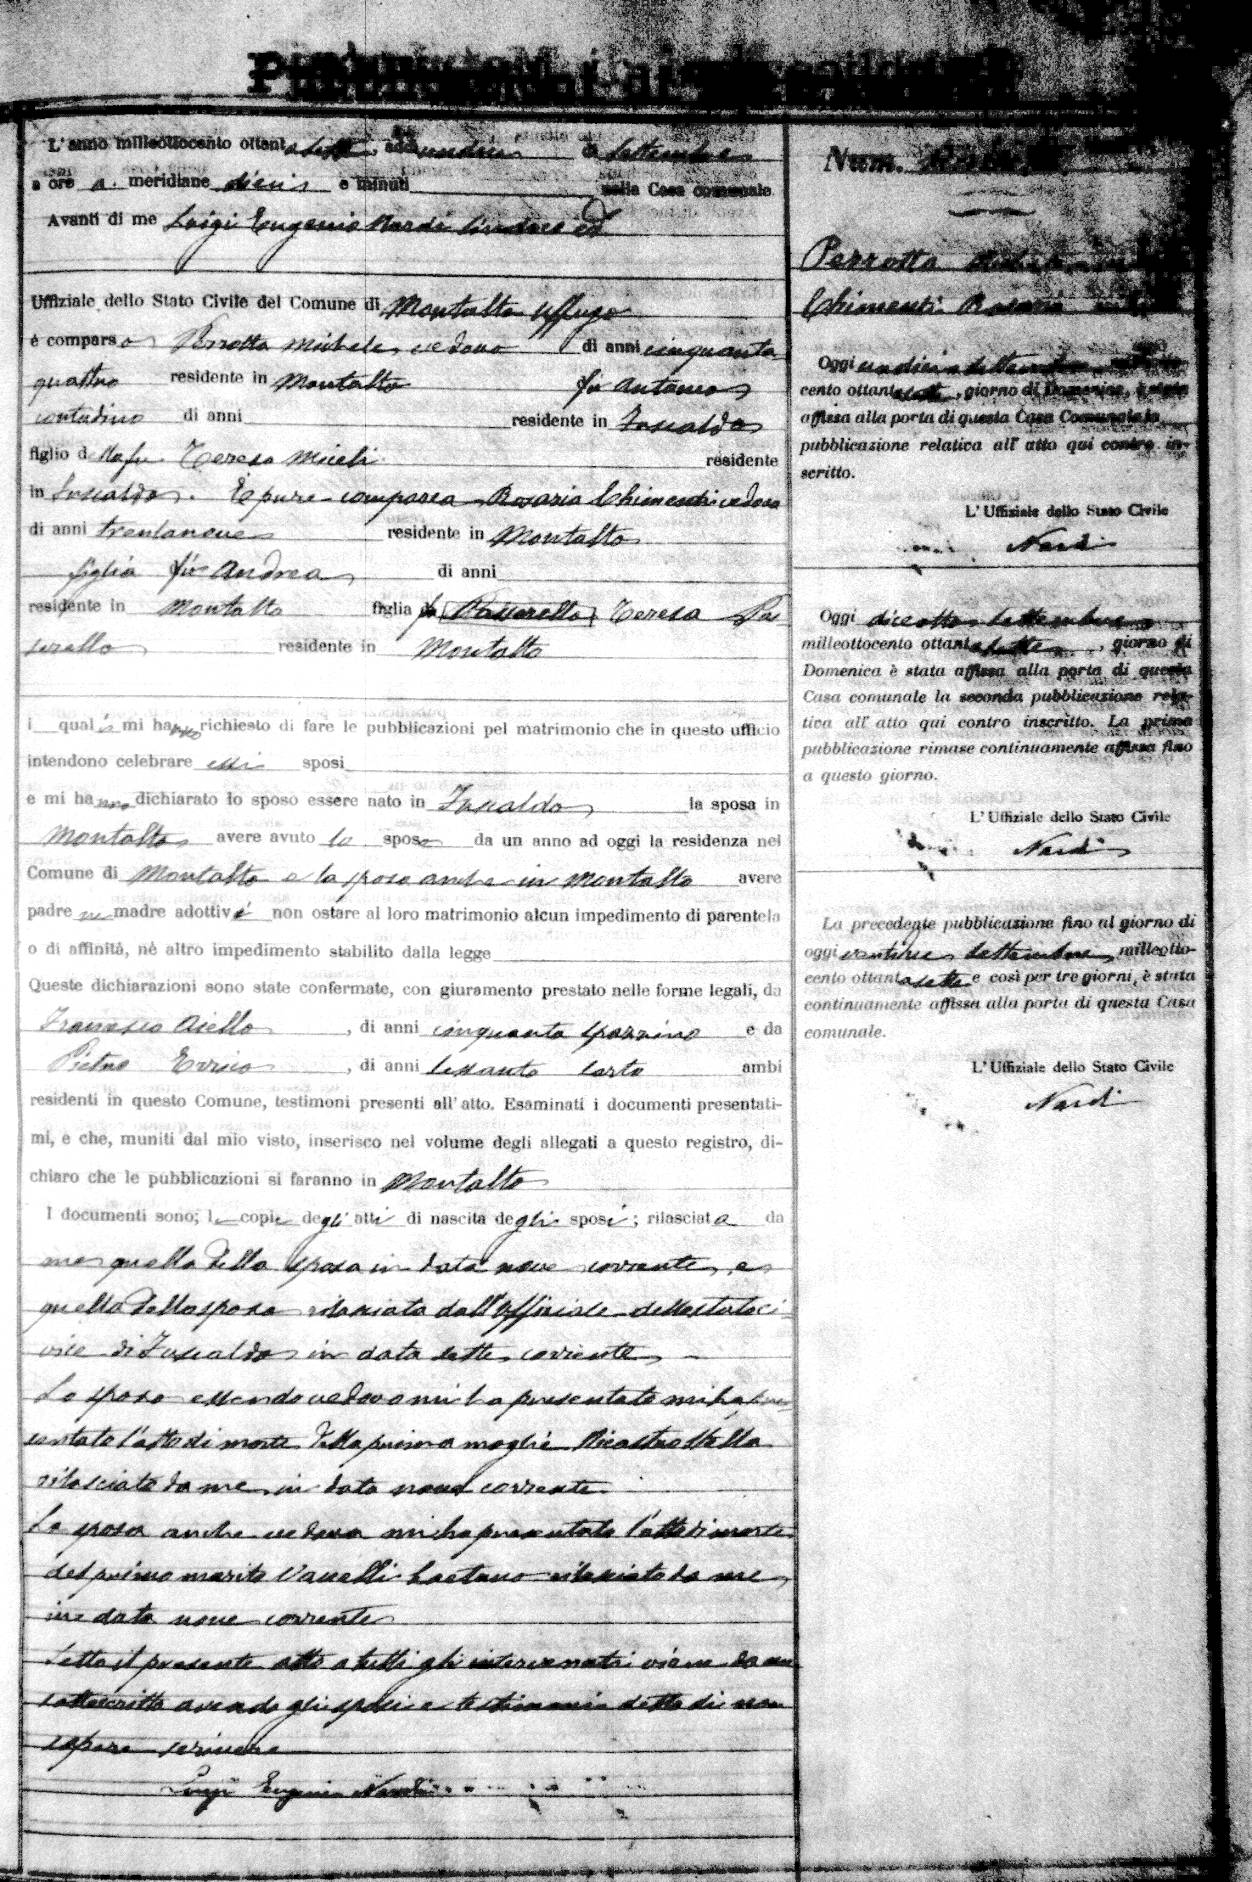 L'anno milleottocento ottantasette, addì undici di settembre
a ore a. meridiane dieci e minuti nella Casa comunale
Avanti di me Luigi Eugenio Nardi Sindaco ed
Uffiziale dello Stato Civile del Comune di Montalto Uffugo
è comparso Perrotta Michele, vedovo di anni cinquanta
quattro residente in Montalto fu Antonio
contadino di anni residente in Fuscaldo
figlio della fu Teresa Miceli residente
in Fuscaldo. E pure comparsa Rosaria Chimenti vedova
di anni trentanove residente in Montalto
figlia fu Andrea di anni
residente in Montalto figlia fu Passarello Teresa Pas
sarello residente in Montalto
i quali mi hanno richiesto di fare le pubblicazioni pel matrimonio che in questo ufficio
intendono celebrare essi sposi
e mi hanno dichiarato lo sposo essere nato in Fuscaldo la sposa in
Montalto avere avuto lo sposo da un anno ad oggi la residenza nel
Comune di Montalto e la sposa anche in Montalto avere
padre ne madre adottivi non ostare al loro matrimonio alcun impedimento di parentela
o di affinità, nè altro impedimento stabilito dalla legge
Queste dichiarazioni sono state confermate, con giuramento prestato nelle forme legali, da
Francesco Aiello, di anni cinquanta spazzino e da
Pietro Errico, di anni sessanta sarto ambi
residenti in questo Comune, testimoni presenti all'atto. Esaminati i documenti presentati-
mi, e che, muniti dal mio visto, inserisco nel volume degli allegati a questo registro, di-
chiaro che le pubblicazioni si faranno in Montalto
I documenti sono; le copie degli atti di nascita degli sposi; rilasciata da
me quella della sposa in data nove corrente, e
quella dello sposo rilasciata dall'Uffiziale dello stato ci
vile di Fuscaldo in data sette corrente
Lo sposo essendo vedovo mi ha presentato mi ha pre
sentato l'atto di morte della prima moglie Nicastro Stella
rilasciato da me in data nove corrente.
La sposa anche vedova mi ha presentato l'atto di morte
del primo marito Gaetano rilasciato da me
in data nove corrente
Letto il presente atto a tutti gli intervenuti viene da me
sottoscritto avendo gli sposi e testimoni detto di non
sapere scrivere
Luigi Eugenio Nardi
Num.
Perrotta Michele
Chimenti Rosaria
Oggi undici settembre
cento ottantasette, giorno di Domenica, è stata
affissa alla porta di questa Casa Comunale la
pubblicazione relativa all'atto qui contro in-
scritto.
L'Uffiziale dello Stato Civile
Nardi
Oggi diciotto settembre
milleottocento ottantasette, giorno di
Domenica è stata affissa alla porta di questa
Casa comunale la seconda pubblicazione rela-
tiva all'atto qui contro inscritto. La prima
pubblicazione rimase continuamente affissa fino
a questo giorno.
L'Uffiziale dello Stato Civile
Nardi
La precedente pubblicazione fino al giorno di
oggi settembre milleotto-
cento ottantasette e così per tre giorni, è stata
continuamente affissa alla porta di questa Casa
comunale.
L'Uffiziale dello Stato Civile
Nardi